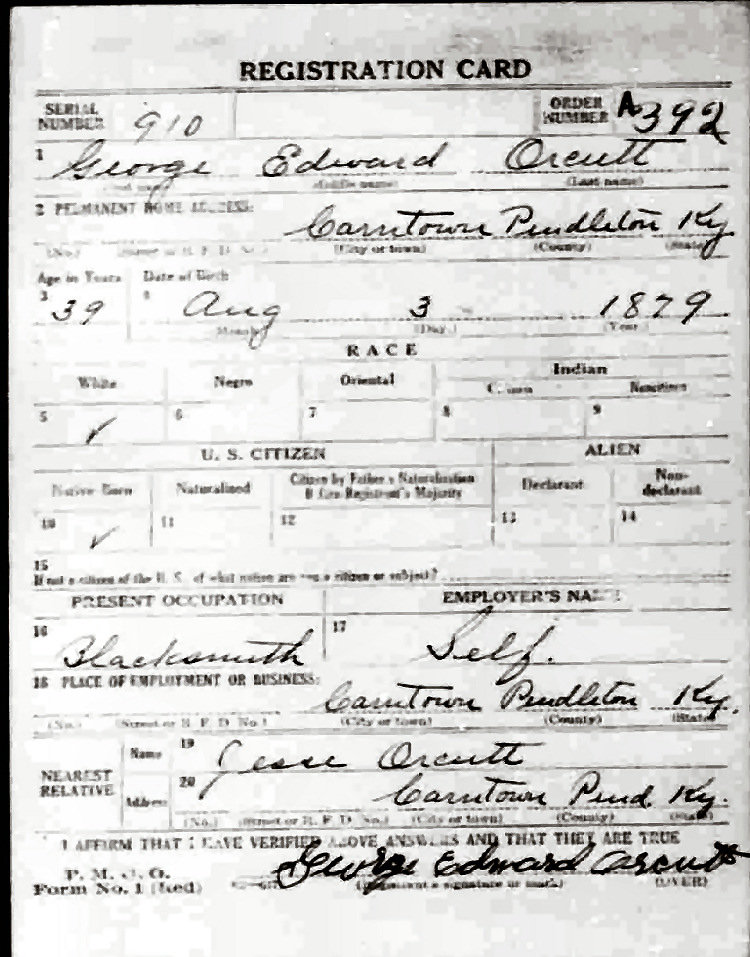 REGISTRATION CARD
SERIAL NUMBER 910 ORDER NUMBER A392
1 George Edward Orcutt
(Middle name) (Last name)
2 PERMANENT HOME ADDRESS:
Carntown Pendleton Ky
(No.) (Street or R. F. D. No.) (City or town) (County) (State)
Age in Years Date of Birth
3 39 4 Aug 3 1879
(Month) (Day.) (Year.)
RACE
White Negro Oriental Indian
Citizen Noncitizen
5 ✓ 6 7 8 9
U. S. CITIZEN ALIEN
Native Born Naturalized Citizen by Father's Naturalization Before Registrant's Majority Declarant Non-declarant
10 ✓ 11 12 13 14
15
If not a citizen of the U. S., of what nation are you a citizen or subject?
PRESENT OCCUPATION EMPLOYER'S NAME
16 Blacksmith 17 Self.
18 PLACE OF EMPLOYMENT OR BUSINESS:
Carntown Pendleton Ky.
(No.) (Street or R. F. D. No.) (City or town) (County) (State)
NEAREST RELATIVE Name 19 Jesse Orcutt
Address 20 Carntown Pend. Ky.
(No.) (Street or R. F. D. No.) (City or town) (County) (State)
I AFFIRM THAT I HAVE VERIFIED ABOVE ANSWERS AND THAT THEY ARE TRUE
P. M. G. O.
Form No. 1 (Red) George Edward Orcutt
(Registrant's signature or mark) (OVER)